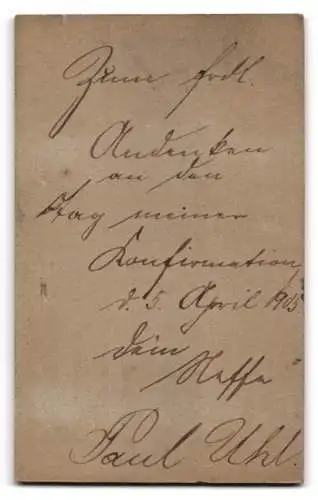 Zum frdl.
Andenken
an den
Tag meiner
Konfirmation
d. 5. April 1905
Dein
Neffe
Paul Uhl.